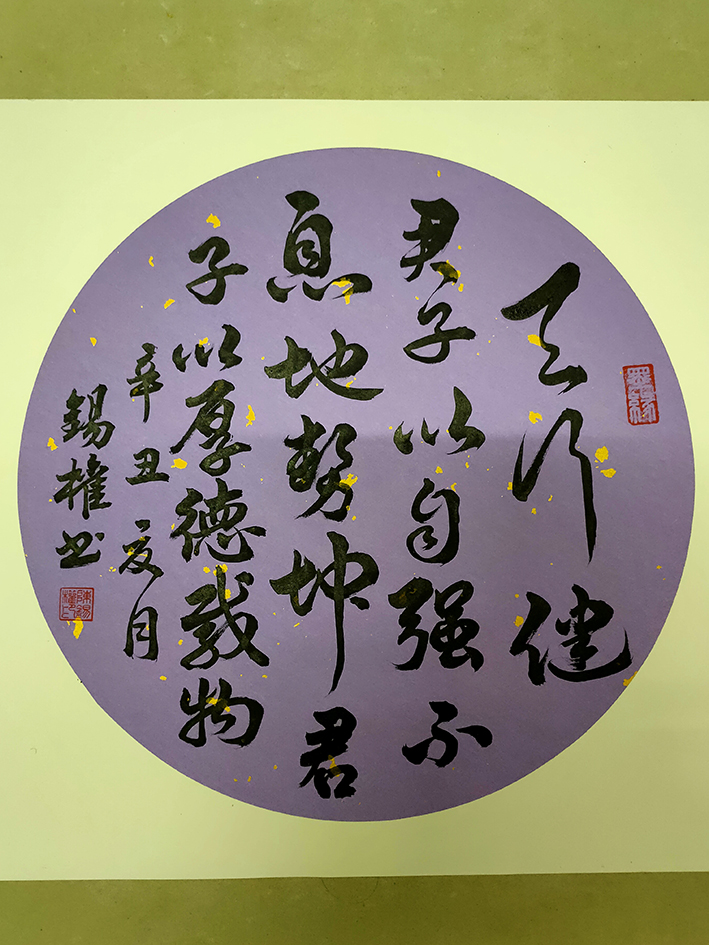 天行健
君子以自强不
息地势坤君
子以厚德载物
辛丑夏月
锡权书
陈锡权印